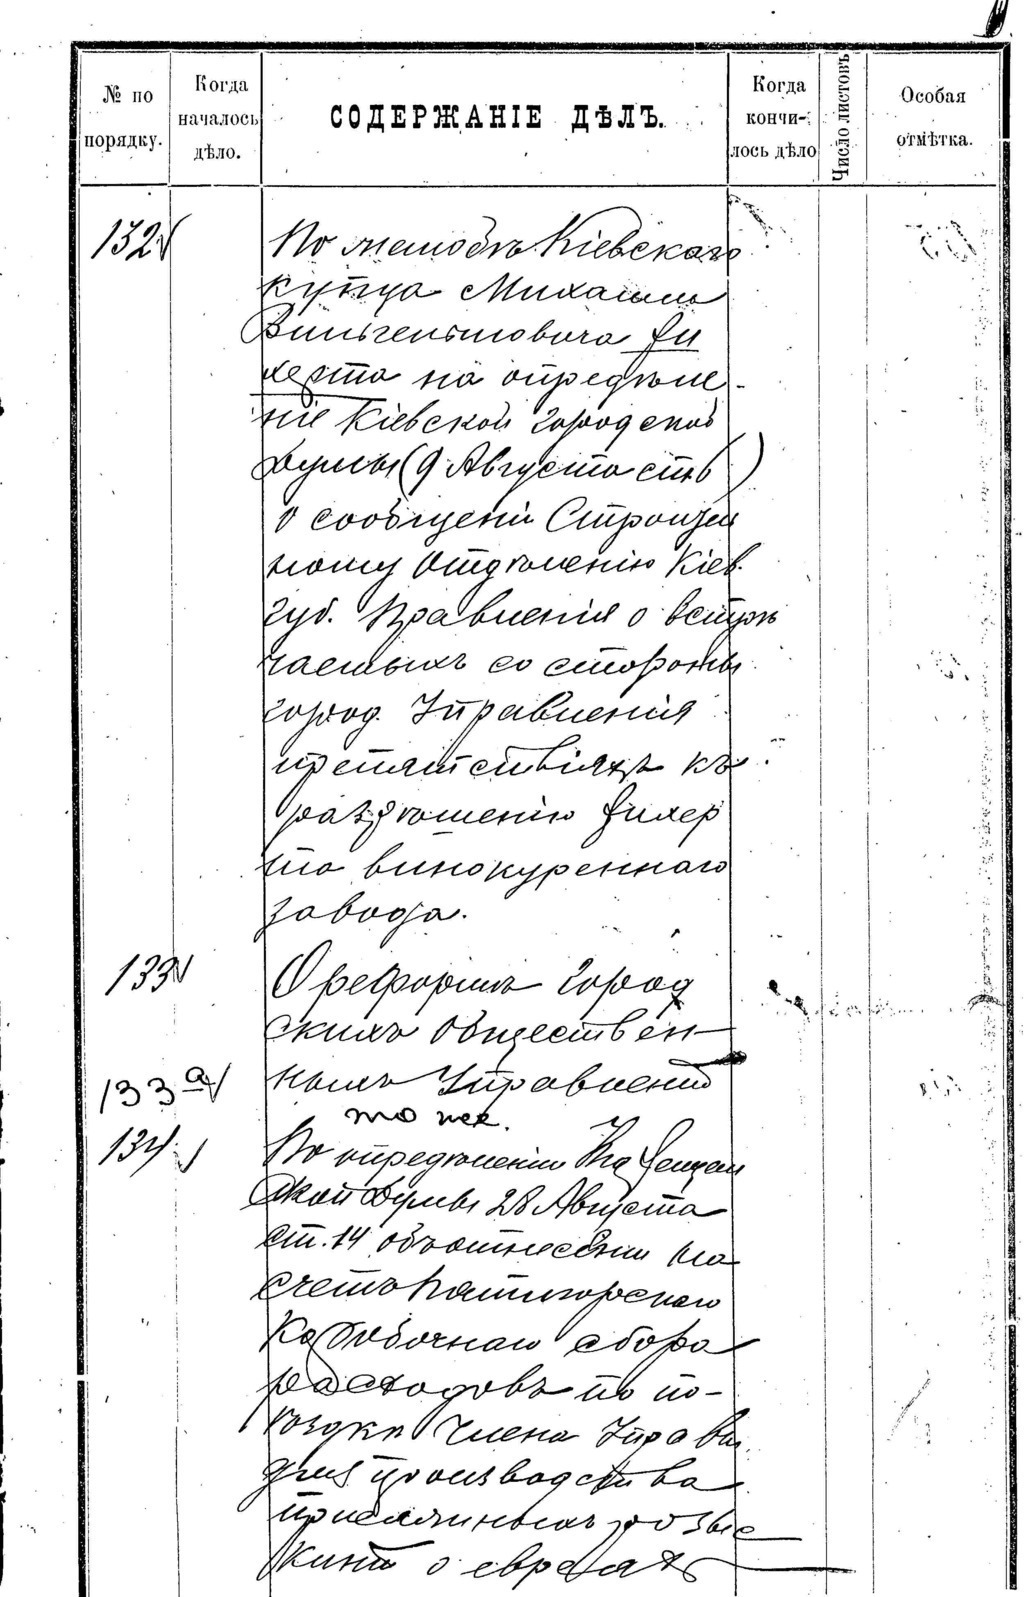 № по порядку.
Когда началось дѣло.
СОДЕРЖАНІЕ ДѢЛЪ.
Когда кончилось дѣло
Число листовъ
Особая отмѣтка.
132
По жалобѣ Кіевскаго
купца Михаила
Викентьевича Фи
херта на опредѣле-
ніе Кіевской городской
Думы (9 Августа
о сообщеніи Строитель
ному Отдѣленію Кіев.
Губ. Правленія о встрѣ
чаемыхъ со стороны
город. Управленія
препятствіяхъ къ
разрѣшенію Фихер
та винокуреннаго
завода.
133
О реформѣ город
скихъ обществен-
ныхъ Управленій
133а
то же.
134
По опредѣленію
Думы 28 Августа
ст. 14 объ отнесеніи на
счетъ
Коробочнаго сбора
расходовъ по по-
ѣздкѣ Члена Управы
для производства
розыс
каній о евреяхъ